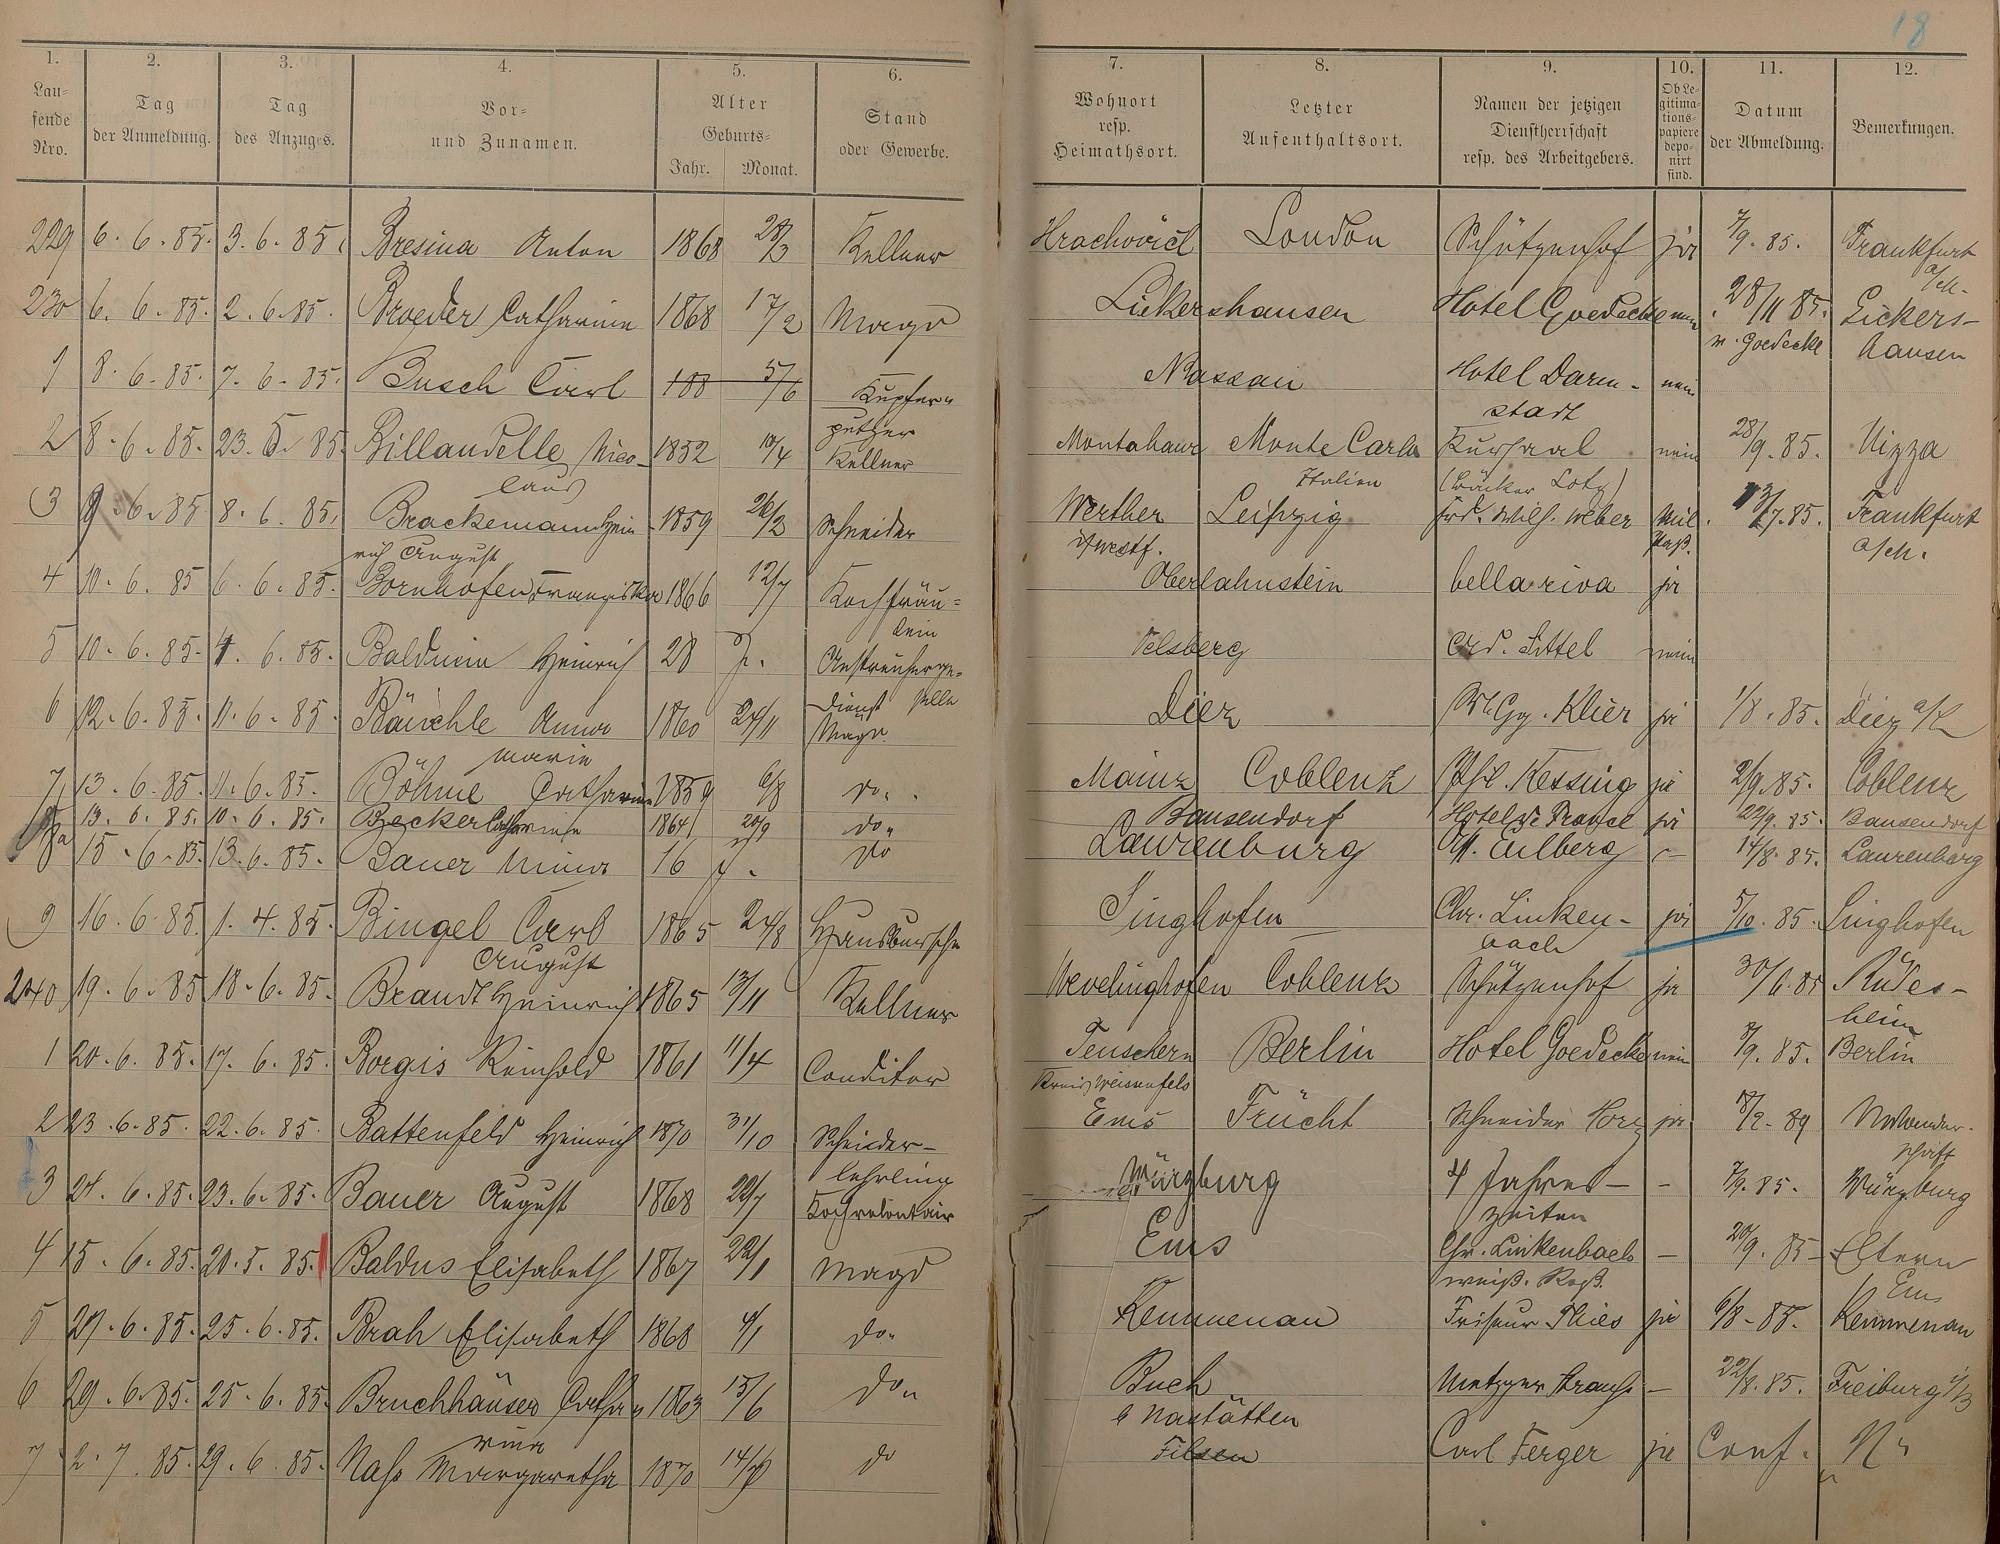 18
1. 2. 3. 4. 5. 6. 7. 8. 9. 10. 11. 12.
Laufende Nro. Tag der Anmeldung. Tag des Anzuges. Vor- und Zunamen. Alter Geburts- Jahr. Monat. Stand oder Gewerbe. Wohnort resp. Heimathsort. Letzter Aufenthaltsort. Namen der jetzigen Dienstherrschaft resp. des Arbeitgebers. Ob Legitimationspapiere deponirt sind. Datum der Abmeldung. Bemerkungen.
229 6. 6. 85. 3. 6. 85. Bresina Anton 1868 28/3 Kellner Hrachovict London Schützenhof ja 7/9. 85. Frankfurt
a/M.
230 6. 6. 85. 2. 6. 85. Broeder Catharine 1868 17/2 Magd Lickershausen Hotel Goedecke nein 28/11 85. Lickers-
n. Goedecke hausen
1 8. 6. 85. 7. 6. 85. Busch Carl 188 5/6 Kupfer- Nassau Hotel Darm- nein
putzer stadt
2 8. 6. 85. 23. 5. 85. Billaudelle Nico- 1852 10/4 Kellner Montabaur Monte Carlo Kursaal nein 28/9. 85. Nizza
laus Italien (Bäcker Lotz)
3 9. 6. 85 8. 6. 85. Brackemann Hein- 1859 26/2 Schneider Werther Leipzig Frd. Wilh. Weber Mil. 13/7. 85. Frankfurt
rich August i/Westf. Paß. a/M.
4 10. 6. 85 6. 6. 85. Bornhofen Franziska 1866 12/7 Kochfräu- Oberlahnstein bella riva ja
lein
5 10. 6. 85. 4. 6. 85. Balduin Heinrich 28 J. Anstreicherge- Felsberg Ard. Sittel nein
selle
6 12. 6. 85. 11. 6. 85. Bäuchle Anna 1860 24/11 Dienst Magd. Diez Gg. Klier ja 1/8. 85. Diez a/L
Marie
7 13. 6. 85. 11. 6. 85. Böhme Catharine 1859 6/8 do. Mainz Coblenz Phil. Kessing ja 2/9. 85. Coblenz
8a 13. 6. 85. 10. 6. 85. Becker Catharine 1864 20/9 do. Bausendorf Hotel de France ja 22/9. 85. Bausendorf
8 15. 6. 85. 13. 6. 85. Bauer Mina 16 J. do Laurenburg Eilberg – 14/8. 85. Laurenburg
9 16. 6. 85. 1. 4. 85. Bingel Carl 1865 24/8 Hausbursche Singhofen Chr. Linken- ja 5/10. 85. Singhofen
August bach
240 19. 6. 85 18. 6. 85. Brandt Heinrich 1865 13/11 Kellner Wevelinghofen Coblenz Schützenhof ja 30/6. 85 Rüdes-
heim
1 20. 6. 85. 17. 6. 85. Borgis Reinhold 1861 11/4 Conditor Teuschern Berlin Hotel Goedecke nein 8/9. 85. Berlin
Kreis Weissenfels
2 23. 6. 85. 22. 6. 85. Battenfeld Heinrich 1870 31/10 Schneider- Ems Frücht Schneider ja 8/2. 89
lehrling
3 24. 6. 85. 23. 6. 85. Bauer August 1868 20/7 Kochvolontair Würzburg 4 Jahres- – 7/9. 85. Würzburg
zeiten
4 15. 6. 85. 20. 5. 85. Baldus Elisabeth 1867 22/1 Magd Ems Chr. Linkenbach – 20/9. 85 Eltern
weiß. Roß. Ems
5 29. 6. 85. 25. 6. 85. Brah Elisabeth 1868 4/1 do. Kemmenau Friseur Thies ja 6/8. 85. Kemmenau
6 29. 6. 85. 25. 6. 85. Bruchhäuser Catha- 1863 15/6 do. Buch Metzger Strauß – 22/8. 85. Freiburg i/B
rina b Nastätten
7 2. 7. 85. 29. 6. 85. Naß Margaretha 1870 14/ do Filsen Carl Ferger ja Conf. N.